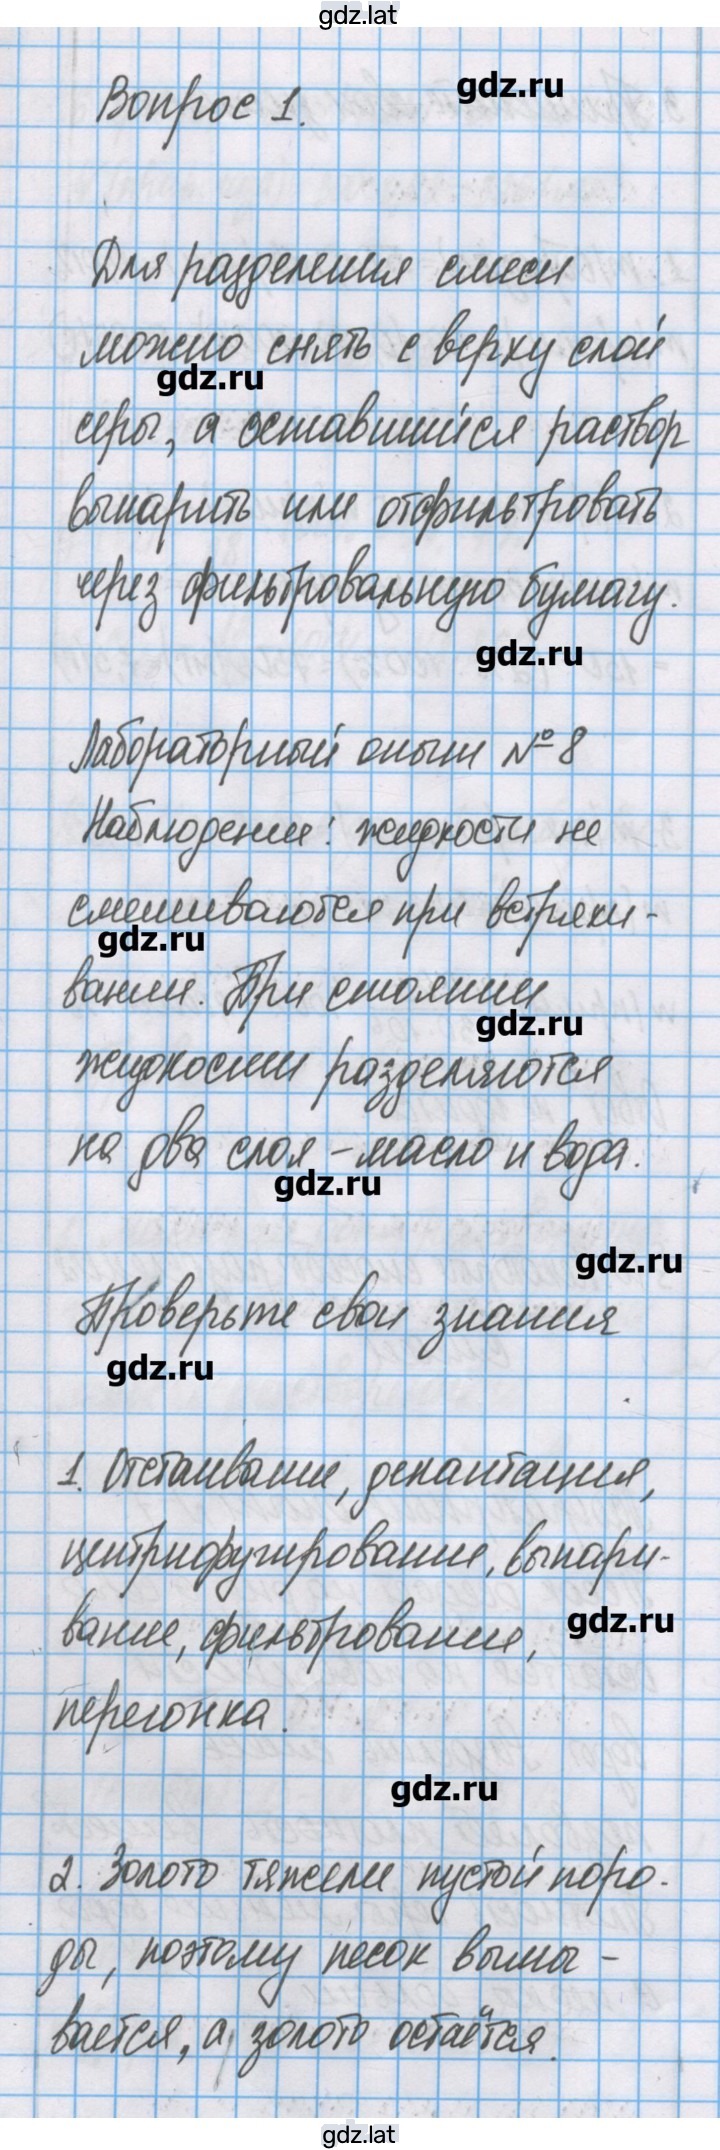 gdz.lat
Вопрос 1.
gdz.ru
Для разделения смеси
можно снять с верху слой
gdz.ru
серы, а оставшийся раствор
выпарить или отфильтровать
через фильтровальную бумагу.
gdz.ru
Лабораторный опыт №8
Наблюдении: жидкости не
смешиваются при встряхи-
gdz.ru
вании. При стоянии
gdz.ru
жидкости разделяются
на два слоя - масло и вода.
gdz.ru
gdz.ru
Проверьте свои знания
gdz.ru
1. Отстаивание, декантация,
центрифугирование, выпари-
вание, фильтрование,
gdz.ru
перегонка.
gdz.ru
2. Золото тяжелее пустой поро-
ды, поэтому песок вымы-
вается, а золото остаётся.
gdz.lat